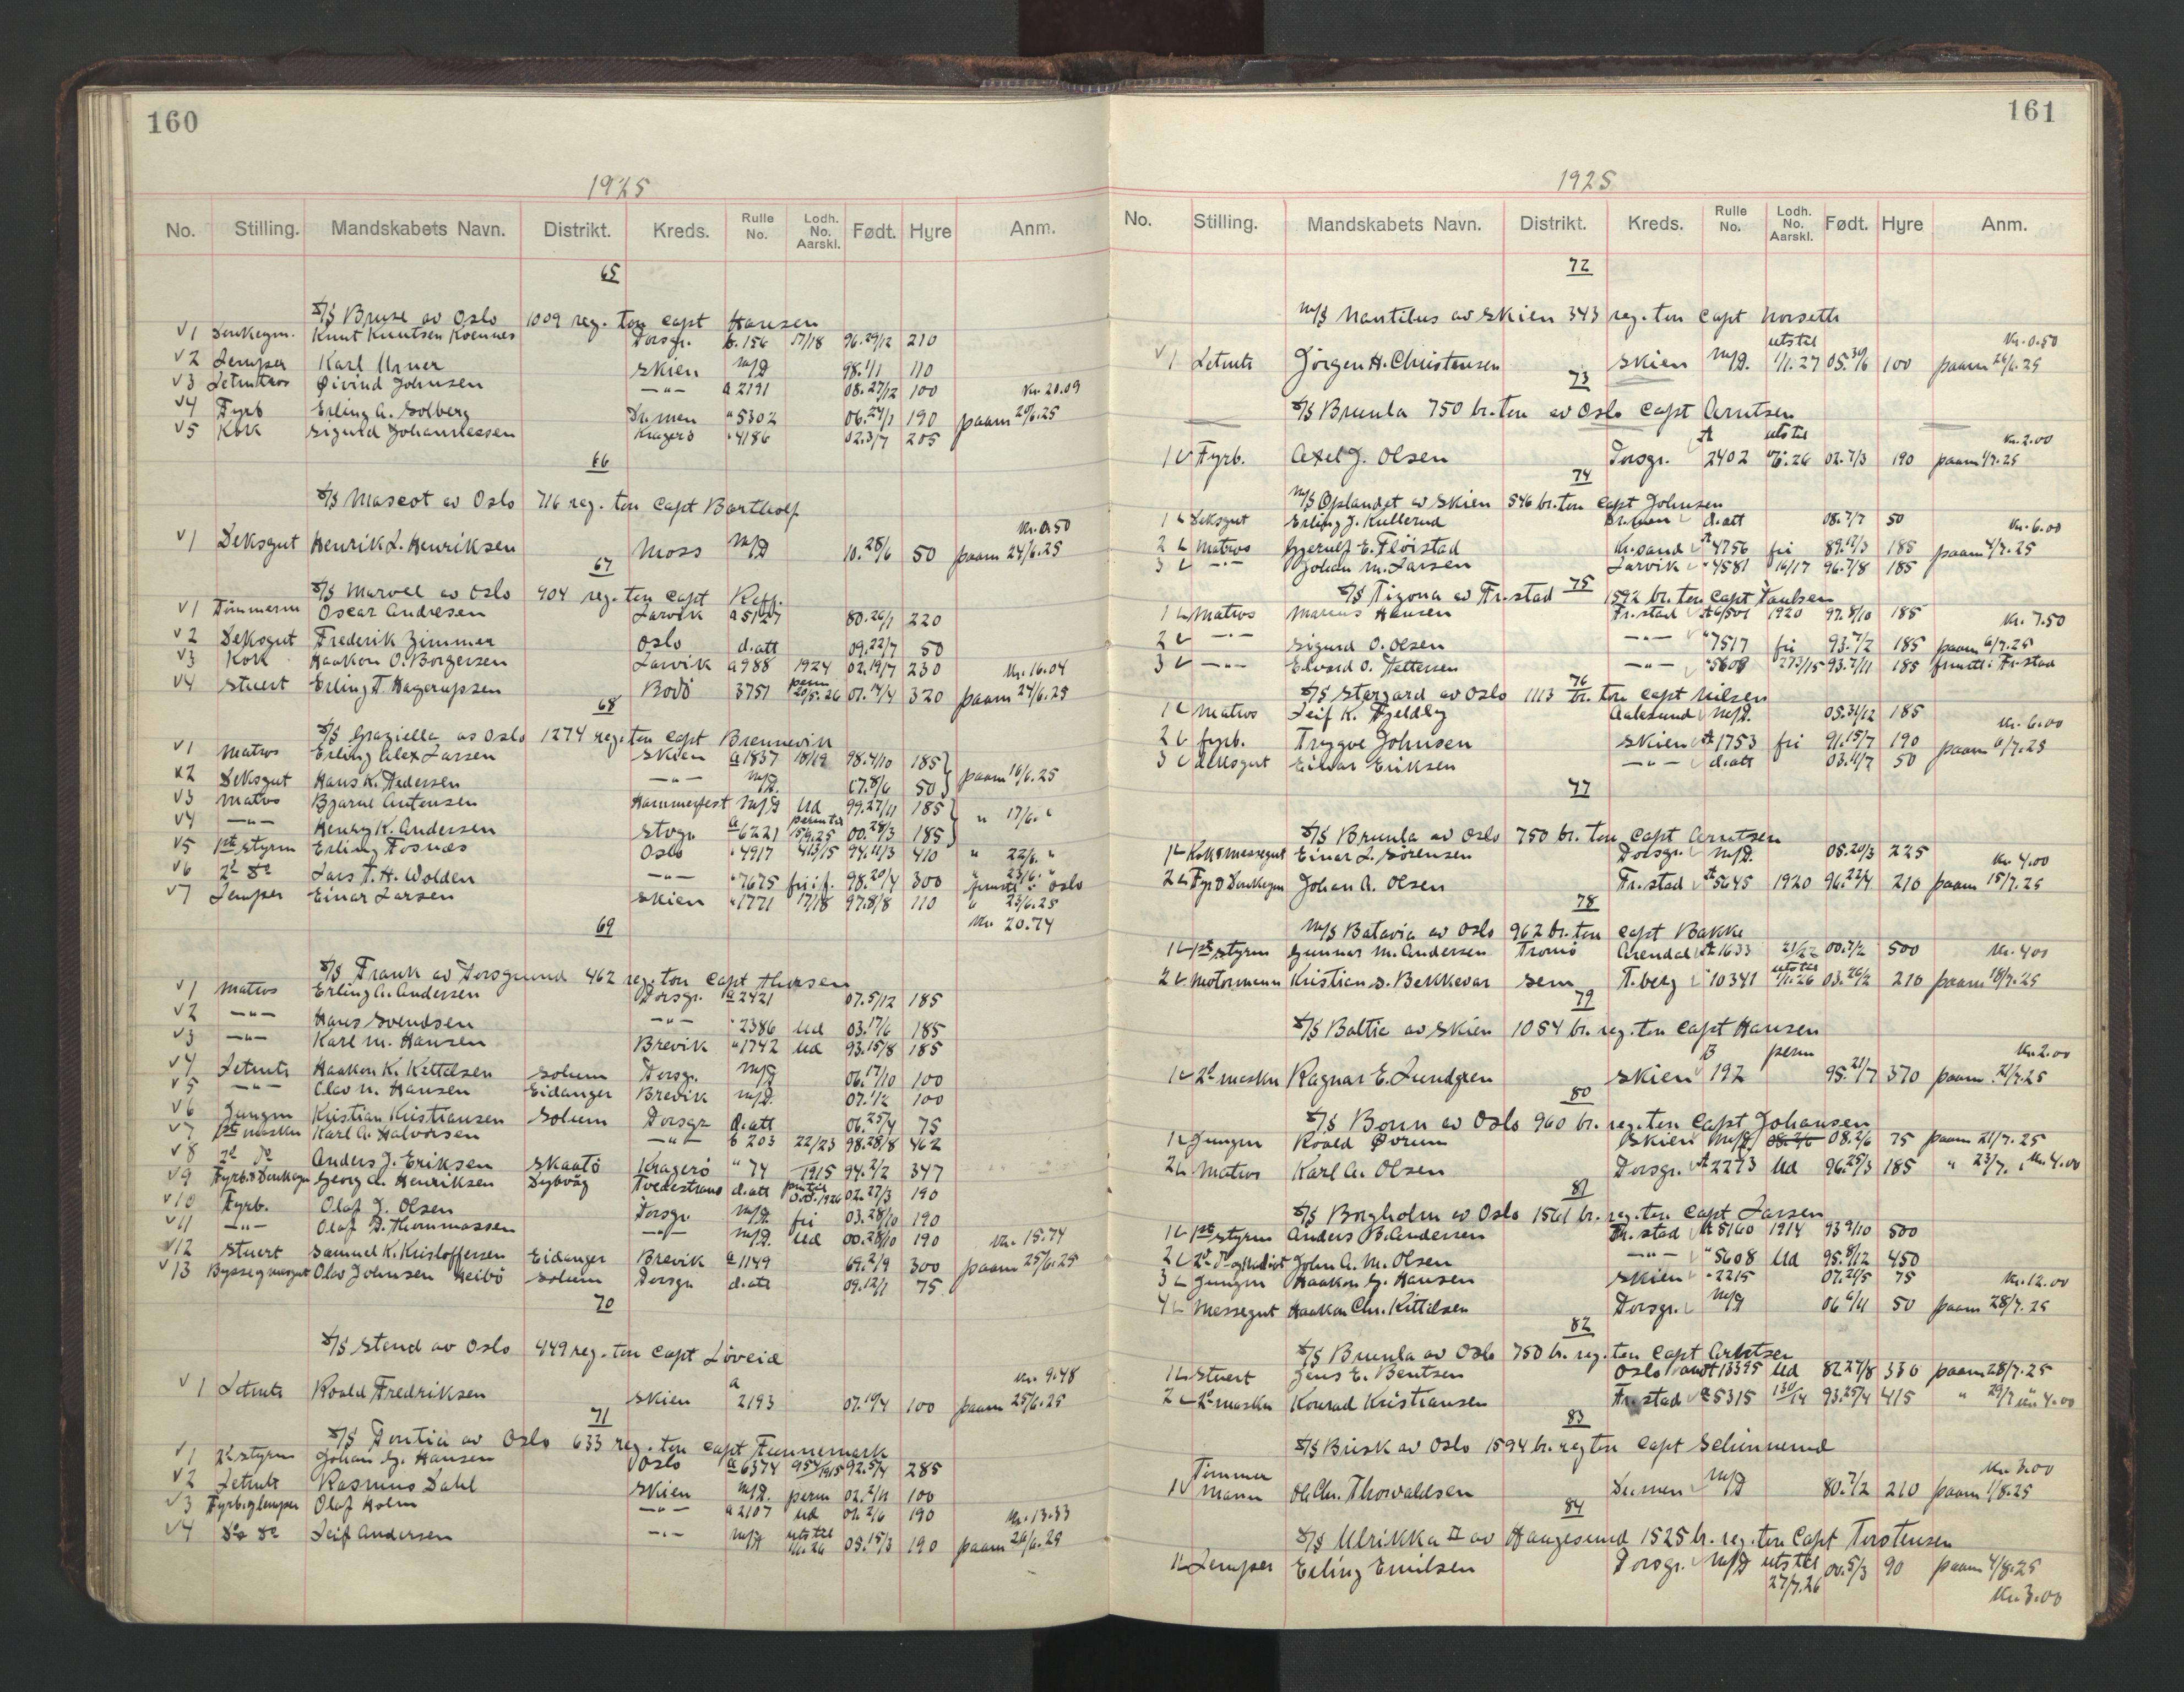 160
1925
No. Stilling. Mandskabets Navn. Distrikt. Kreds. Rulle No. Lodh. No. Aarskl. Født. Hyre Anm.
65
S/S Bruse av Oslo 1009 reg. ton Capt Hansen
1 Donkeym. Knut Knutsen Porsgr. b. 156 17/18 96.29/12 210
2 Lemper Karl Skien M/P 98.1/1 110
3 Letmtros Øivind Johnsen —"— a 2191 08.27/12 100 Kr. 20.09
4 Fyrb Erling A. Solberg Dr.men " 5302 06.24/1 190 paam 20/6.25
5 Kok Sigurd Johannessen Kragerø " 4186 02.3/7 205
66
S/S Mascot av Oslo 716 reg. ton Capt Bartholf
Kr. 0.50
1 Deksgut Henrik L. Henriksen Moss M/P 10.28/6 50 paam 24/6.25
67
S/S Marvel av Oslo 904 reg. ton Capt Reff.
1 Tømmerm Oscar Andresen Larvik a 5127 80.26/1 220
2 Deksgut Frederik Zimmer Oslo d.att 09.22/7 50
3 Kok Haakon O. Borgersen Larvik a 988 1924 02.19/7 230 Kr. 16.04
4 Stuert Erling T. Hagerupsen Bodø 3751 perm 20/5.26 01.14/4 320 paam 24/6.25
68
S/S Graziella av Oslo 1274 reg. ton Capt Brennevin
1 Matros Erling Alex Larsen Skien a 1837 18/19 98.4/10 185
2 Deksgut Hans K. Pedersen —"— M/P. 07.8/6 50 paam 16/6.25
3 Matros Bjarne Antonsen Hammerfest M/P Ud 99.27/11 185
4 —"— Henry K. Andersen Stvgr a 6221 perm til 15/9.25 00.28/3 185 " 17/6. "
5 1ste Styrm Erling Fosnæs Oslo " 4917 413/15 94.11/3 410 " 22/6. "
6 2d do Lars T. H. Wolden —"— " 7675 fri i f. 98.20/4 300 " 23/6. " frmstl i Oslo
7 Lemper Einar Larsen Skien " 1771 17/18 97.8/8 110 " 23/6.25
Kr. 20.74
69
S/S Frank av Porsgrund 462 reg. ton Capt Thorsen
1 Matros Erling A. Andersen Porsgr. a 2421 07.5/12 185
2 —"— Hans Svendsen —"— " 2386 Ud 03.17/6 185
3 —"— Karl M. Hansen Brevik " 1742 Ud 93.15/8 185
4 Letmts Haakon K. Kittilsen Solum Porsgr. M/P 06.17/10 100
5 —"— Olav N. Hansen Eidanger Brevik M/P. 07.1/2 100
6 Jungm Kristian Kristiansen Solum Porsgr d.att 06.25/4 75
7 1ste maskn Karl A. Halvorsen —"— b 203 22/23 98.28/8 462
8 2d do Anders J. Eriksen Skaatø Kragerø " 74 1915 94.2/2 347
9 Fyrb. & Donkeym Georg A. Henriksen Dybvåg Tvedestrand d.att 02.27/3 190
10 Fyrb. Olaf J. Olsen Porsgr. M/P. fri 03.28/10 190
11 —"— Olaf D. Thommassen —"— M/P. Ud 00.28/10 190 Kr. 15.74
12 Stuert Samuel K. Kristoffersen Eidanger Brevik a 1149 69.2/9 300 paam 25/6.25
13 Byssegmesgut Olav Johnsen Heibø Solum Porsgr d.att 09.12/1 75
70
S/S Stend av Oslo 449 reg. ton Capt Løveid
Kr. 9.48
1 Letmts Roald Fredriksen Skien a 2193 07.10/4 100 paam 25/6.25
71
S/S Pontia av Oslo 633 reg. ton Capt Funnemark
1 2d Styrm Johan G. Hansen Oslo a 6374 954/1915 92.5/4 285
2 Letmts Rasmus Dahl Skien M/P. perm 02.2/11 100
3 Fyrb. & lemper Olaf Holm —"— a 2107 Ud 01.2/6 190 Kr. 13.33
4 do do Leif Andersen —"— M/P uts til 1/1.26 05.15/3 190 paam 26/6.25
161
1925
No. Stilling. Mandskabets Navn. Distrikt. Kreds. Rulle No. Lodh. No. Aarskl. Født. Hyre Anm.
72
M/S Nautilus av Skien 343 reg. ton Capt Norseth
Kr. 0.50
1 Letmts Jörgen H. Christensen Skien M/P. uts til 1/1.27 05.30/6 100 paam 26/6.25
73
S/S Brunla 750 br. ton av Oslo Capt Arntsen
Kr. 2.00
1 Fyrb. Axel J. Olsen Porsgr. A 2402 uts til 26 02.7/3 190 paam 1/7.25
74
M/S Oplandet av Skien 546 br. ton Capt Johnsen
1 Deksgut Erling J. Kullerud Dr.men d.att 08.7/7 50 Kr. 6.00
2 Matros Gjerulf E. Fløistad Kr.sand A 4756 fri 89.12/3 185 paam 4/7.25
3 —"— Johan M. Larsen Larvik " 4581 16/17 96.7/8 185
75
S/S Tizona av Fr.stad 1592 br. ton Capt Paulsen
1 Matros Marcus Hansen Fr.stad A 6/501 1920 97.8/10 185 Kr. 7.50
2 —"— Sigurd O. Olsen —"— " 7517 fri 93.7/2 185 paam 6/7.25
3 —"— Edvard O. Pettersen —"— " 5608 273/15 93.7/11 185 frmstl i Fr.stad
76
S/S Stargard av Oslo 1113 br. ton Capt Nilsen
1 Matros Leif K. Fjeldly Aalesund M/P. 05.31/12 185 Kr. 6.00
2 fyrb. Trygve Johnsen Skien A 1753 fri 91.15/7 190 paam 6/7.25
3 deksgut Einar Eriksen —"— d.att 03.11/7 50
77
S/S Brunla av Oslo 750 br. ton Capt Arntsen
1 Kok & messegut Einar L. Sörensen Porsgr. M/P. 05.20/3 225 Kr. 4.00
2 Fyr & Donkeym Johan A. Olsen Fr.stad A 5645 1920 96.22/4 210 paam 15/7.25
78
M/S Batavia av Oslo 962 br. ton Capt Bakke
1 1ste Styrm Gunnar M. Andersen Tromø Arendal A 1633 21/22 00.7/2 500 Kr. 4.00
2 Motormann Kristian S. Bekkevar Sem T.berg " 10341 uts til 1/1.26 03.26/2 210 paam 18/7.25
79
S/S Baltic av Skien 1054 br. reg. ton Capt Hansen
Kr. 2.00
1 2d maskn Ragnar E. Lundgren Skien B 192 perm 95.21/7 370 paam 21/7.25
80
S/S Bonn av Oslo 960 br. reg. ton Capt Johansen
1 Jungm Roald Ørum Skien M/P. 08.2/6 75 paam 21/7.25
2 Matros Karl A. Olsen Porsgr. A 2273 Ud 96.25/3 185 " 23/7. " Kr. 4.00
81
S/S Borgholm av Oslo 1561 br. reg. ton Capt Larsen
1 1ste Styrm Anders B. Andersen Fr.stad A 5160 1914 93 9/10 500
2 2d do John A. M. Olsen —"— " 5608 Ud 95.8/12 450
3 Jungm Haakon G. Hansen Skien " 2215 07.21/5 75 Kr. 12.00
4 Messegut Haakon Chr. Kittilsen Porsgr. M/P 06 6/11 50 paam 28/7.25
82
S/S Brunla av Oslo 750 br. reg. ton Capt Arntsen
1 Stuert Jens E. Bentsen Oslo A 13395 Ud 82 27/8 330 paam 28/7.25
2 2d maskn Konrad Kristiansen Fr.stad a 5315 130/14 93.25/4 415 " 29/7 Kr. 4.00
83
S/S Brisk av Oslo 1594 br. reg ton Capt Schinnerud
Kr. 3.00
1 Tømmermann Ol. Chr. Thorvaldsen Dr.men M/P 80.7/2 210 paam 1/8.25
84
S/S Ulrikka II av Haugesund 1525 br. reg. ton Capt Torstensen
1 Lemper Erling Emilsen Porsgr. M/P uts til 27/7.26 00.5/3 90 paam 4/8.25
Kr. 3.00